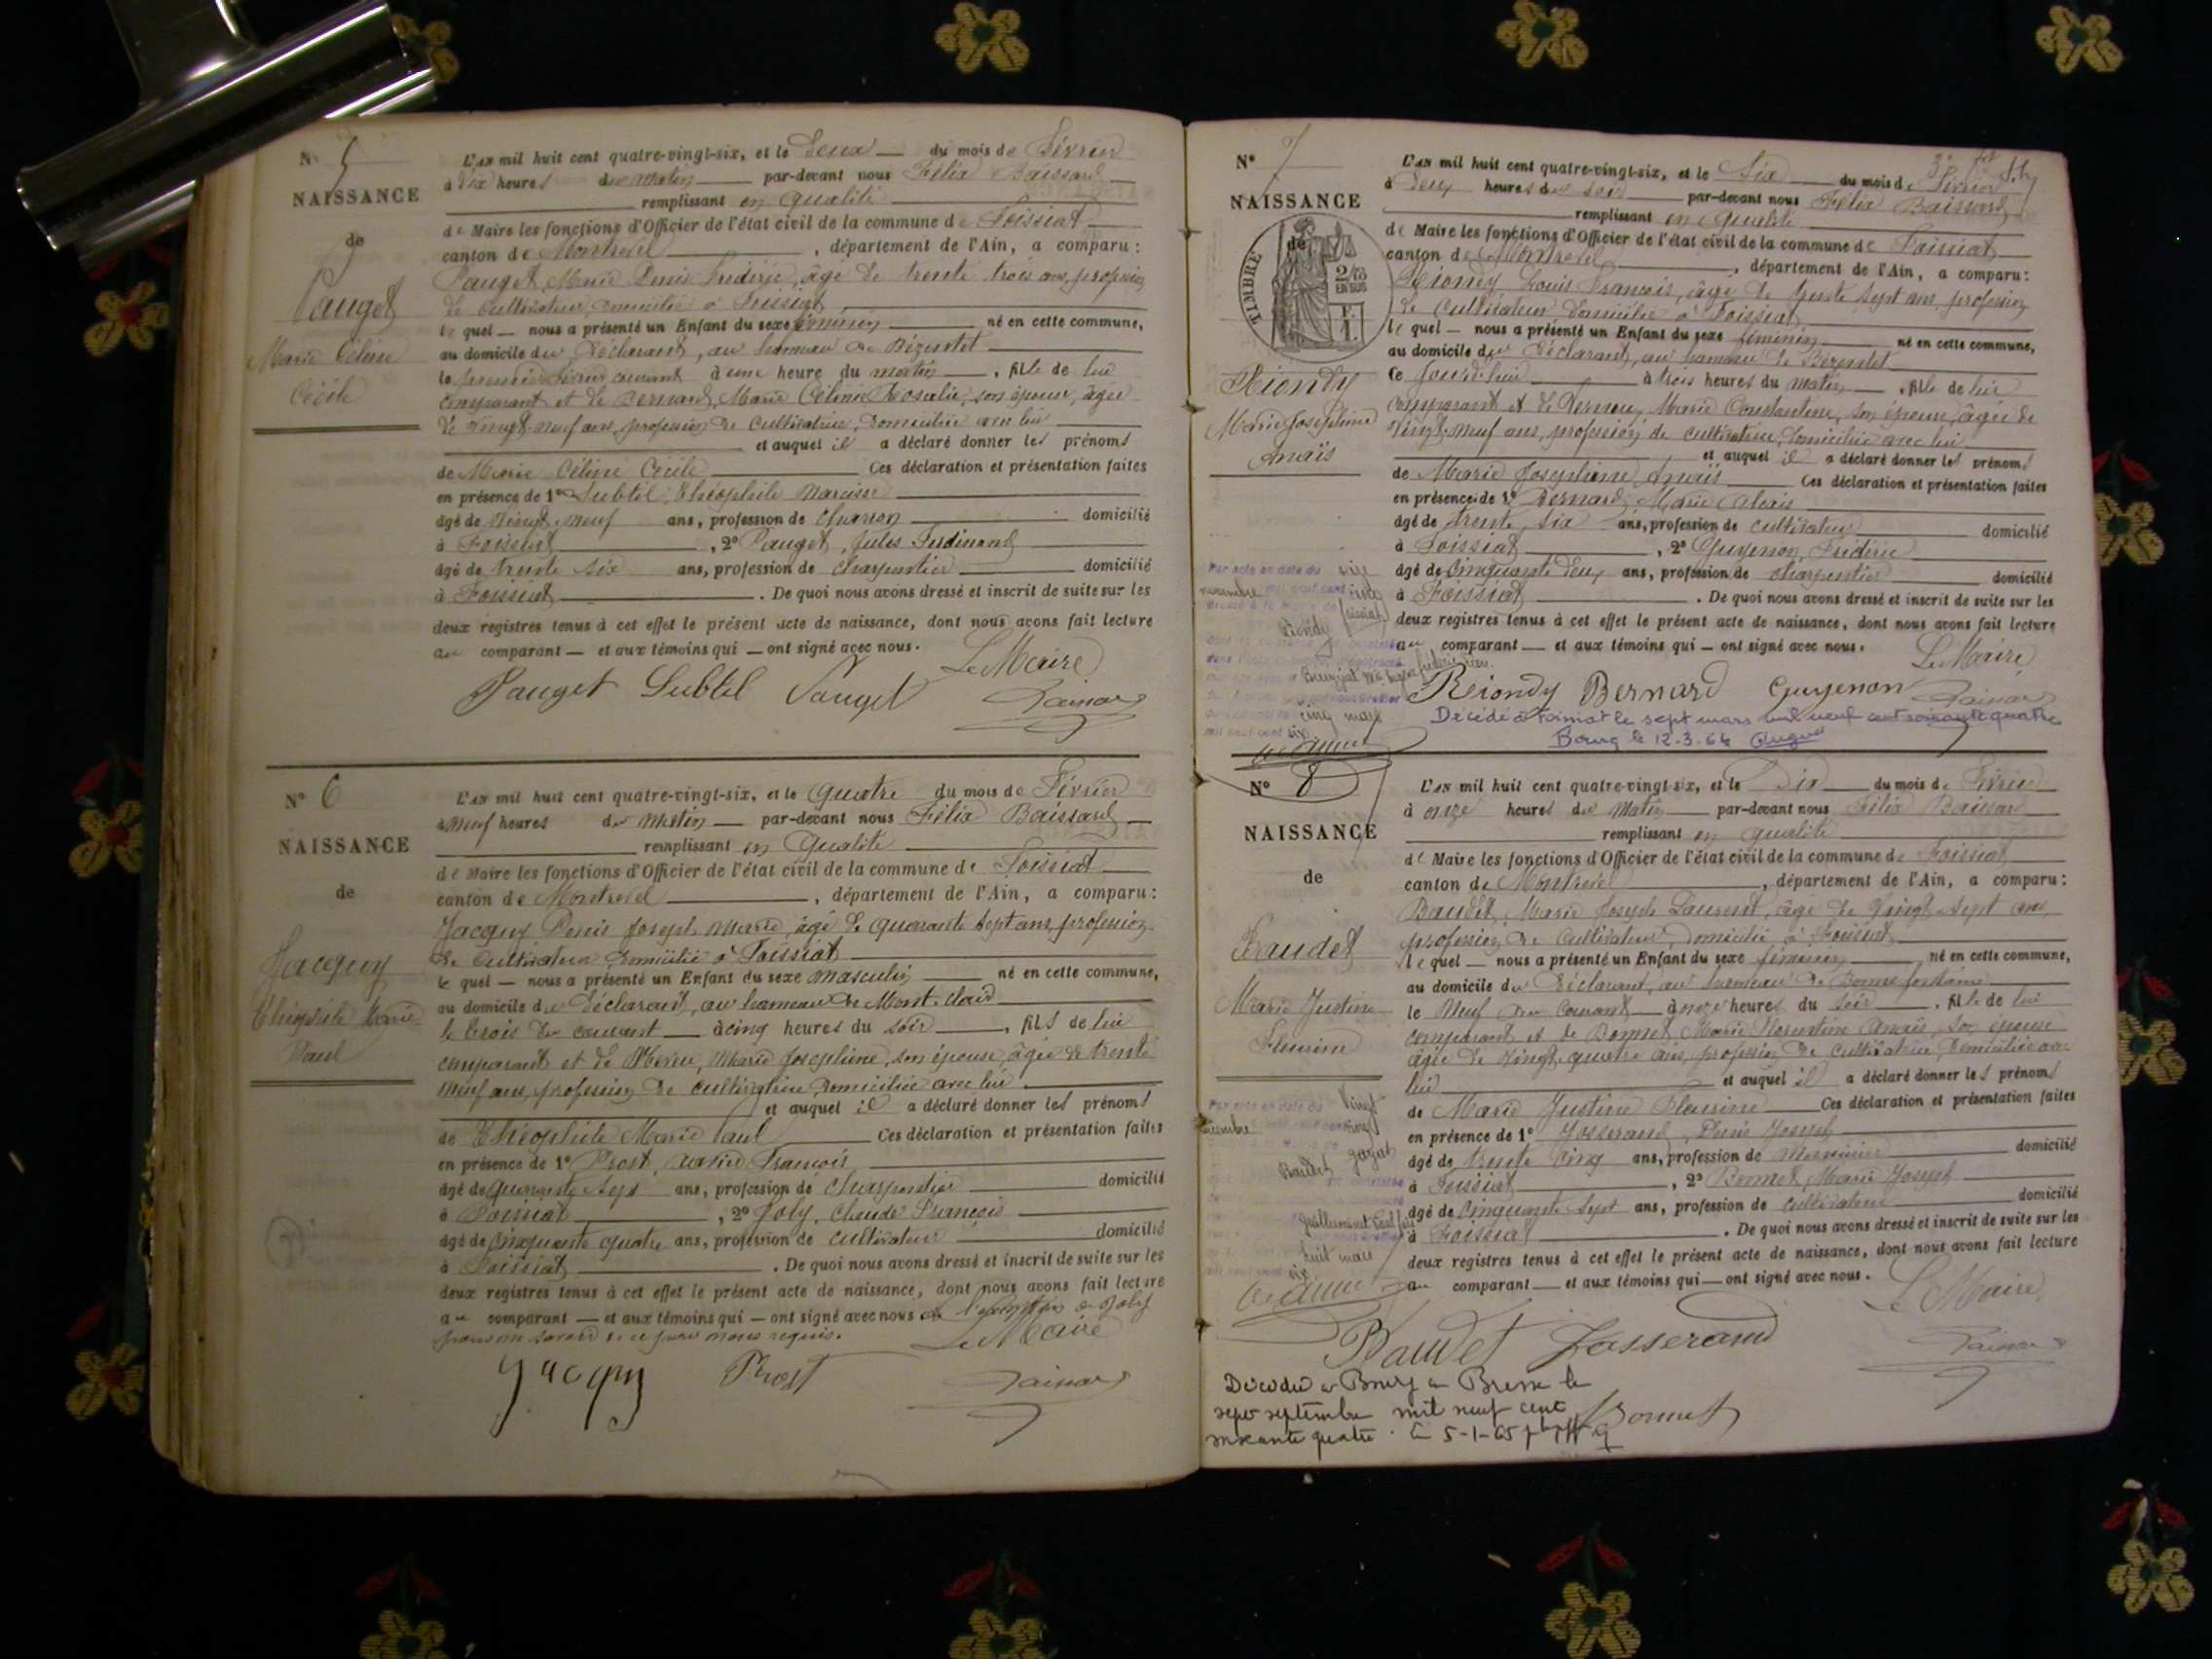 N° 5
NAISSANCE
de
Pauget
Marie Céline
Cécile
L'AN mil huit cent quatre-vingt-six, et le Deux du mois de Février
à dix heures du matin par-devant nous Félix Baissard
remplissant en qualité
de Maire les fonctions d'Officier de l'état civil de la commune de Foissiat
canton de Montrevel, département de l'Ain, a comparu :
Pauget, Marie Denis Frédéric, âgé de trente trois ans, profession
de cultivateur, domicilié à Foissiat
lequel nous a présenté un Enfant du sexe féminin né en cette commune,
au domicile du Déclarant, au hameau de Bézentet
le premier février courant à une heure du matin, fille de lui
comparant et de Bernard, Marie Céline Rosalie, son épouse, âgée
de vingt neuf ans, profession de cultivatrice, domiciliée avec lui
et auquel il a déclaré donner les prénoms
de Marie Céline Cécile Ces déclaration et présentation faites
en présence de 1° Subtil, Théophile Narcisse
âgé de vingt-neuf ans, profession de charron domicilié
à Foissiat, 2° Pauget, Jules Ferdinand
âgé de trente six ans, profession de charpentier domicilié
à Foissiat. De quoi nous avons dressé et inscrit de suite sur les
deux registres tenus à cet effet le présent acte de naissance, dont nous avons fait lecture
au comparant et aux témoins qui ont signé avec nous.
Le Maire
Pauget Subtil Pauget
N° 6
NAISSANCE
de
Jacquy
Théophile Marie
Paul
L'AN mil huit cent quatre-vingt-six, et le Quatre du mois de Février
à neuf heures du matin par-devant nous Félix Baissard
remplissant en qualité
de Maire les fonctions d'Officier de l'état civil de la commune de Foissiat
canton de Montrevel, département de l'Ain, a comparu :
Jacquy Denis Joseph Marie, âgé de quarante sept ans, profession
de cultivateur domicilié à Foissiat
lequel nous a présenté un Enfant du sexe masculin né en cette commune,
au domicile du Déclarant, au hameau de Mont-claid
le trois du courant à cinq heures du soir, fils de lui
comparant et de Marie Josephine, son épouse, âgée de trente
neuf ans, profession de cultivatrice, domiciliée avec lui
et auquel il a déclaré donner les prénoms
de Théophile Marie Paul Ces déclaration et présentation faites
en présence de 1° Prost, François
âgé de quarante sept ans, profession de charpentier domicilié
à Foissiat, 2° Joly, Claude François
âgé de cinquante quatre ans, profession de cultivateur domicilié
à Foissiat. De quoi nous avons dressé et inscrit de suite sur les
deux registres tenus à cet effet le présent acte de naissance, dont nous avons fait lecture
au comparant et aux témoins qui ont signé avec nous de Joly
pour ne savoir de ce par nous requis.
Le Maire
Jacquy Prost
N° 7
NAISSANCE
de
TIMBRE
2/10
EN SUS
Riondy
Marie Joséphine
Anaïs
L'AN mil huit cent quatre-vingt-six, et le Six du mois de Février
à Deux heures du soir par-devant nous Félix Baissard
remplissant en qualité
de Maire les fonctions d'Officier de l'état civil de la commune de Foissiat
canton de Montrevel, département de l'Ain, a comparu :
Riondy, Louis François, âgé de trente sept ans, profession
de cultivateur, domicilié à Foissiat
lequel nous a présenté un Enfant du sexe féminin né en cette commune,
au domicile du Déclarant, au hameau de Bézentet
ce jourd'hui à trois heures du matin, fille de lui
comparant et de Marie Constantine, son épouse, âgée de
vingt-neuf ans, profession de cultivatrice, domiciliée avec lui
et auquel il a déclaré donner les prénoms
de Marie Joséphine Anaïs Ces déclaration et présentation faites
en présence de 1° Bernard, Marie Alexis
âgé de trente six ans, profession de cultivateur domicilié
à Foissiat, 2° Guyenon, Frédéric
âgé de cinquante deux ans, profession de charpentier domicilié
à Foissiat. De quoi nous avons dressé et inscrit de suite sur les
deux registres tenus à cet effet le présent acte de naissance, dont nous avons fait lecture
au comparant et aux témoins qui ont signé avec nous.
Le Maire
Riondy Bernard Guyenon
Par acte en date du
novembre mil neuf cent cinq
Foissiat
Riondy
cinq mars
mil neuf cent six
Décédé à Foissiat le sept mars mil neuf cent soixante quatre
Bourg le 12-3-64
N° 8
NAISSANCE
de
Baudet
Marie Justine
Fleurine
L'AN mil huit cent quatre-vingt-six, et le Dix du mois de Février
à onze heures du matin par-devant nous Félix Baissard
remplissant en qualité
de Maire les fonctions d'Officier de l'état civil de la commune de Foissiat
canton de Montrevel, département de l'Ain, a comparu :
Baudet, Marie Joseph Laurent, âgé de vingt-sept ans,
profession de cultivateur, domicilié à Foissiat
lequel nous a présenté un Enfant du sexe féminin né en cette commune,
au domicile du Déclarant, au hameau de Bonne fontaine
le Neuf du courant à onze heures du soir, fille de lui
comparant et de Bonnet, Marie Florentine Anaïs, son épouse
âgée de vingt-quatre ans, profession de cultivatrice, domiciliée avec
lui et auquel il a déclaré donner les prénoms
de Marie Justine Fleurine Ces déclaration et présentation faites
en présence de 1° Josserand, Denis Joseph
âgé de trente cinq ans, profession de menuisier domicilié
à Foissiat, 2° Bonnet, Marie Joseph
âgé de cinquante sept ans, profession de cultivateur domicilié
à Foissiat. De quoi nous avons dressé et inscrit de suite sur les
deux registres tenus à cet effet le présent acte de naissance, dont nous avons fait lecture
au comparant et aux témoins qui ont signé avec nous.
Le Maire
Par acte en date du vingt
Baudet
huit mars
six
Baudet Josserand
Bonnet
Décédée à Bourg en Bresse le
sept septembre mil neuf cent
soixante quatre. Le 5-1-65